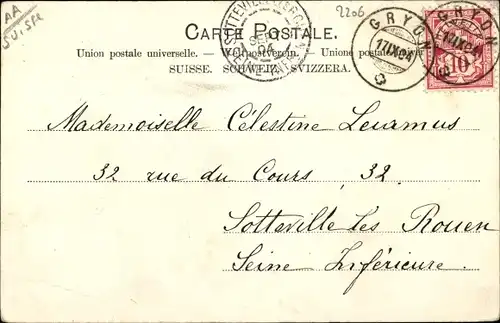 AA
SUISSE
2206
CARTE POSTALE.
Union postale universelle. — Weltpostverein. — Unione postale universale
SUISSE. SCHWEIZ. SVIZZERA.
GRYON
17.IX.04
GRYON
10
Mademoiselle Célestine
32 rue du Cours, 32.
Sotteville les Rouen
Seine Inférieure.